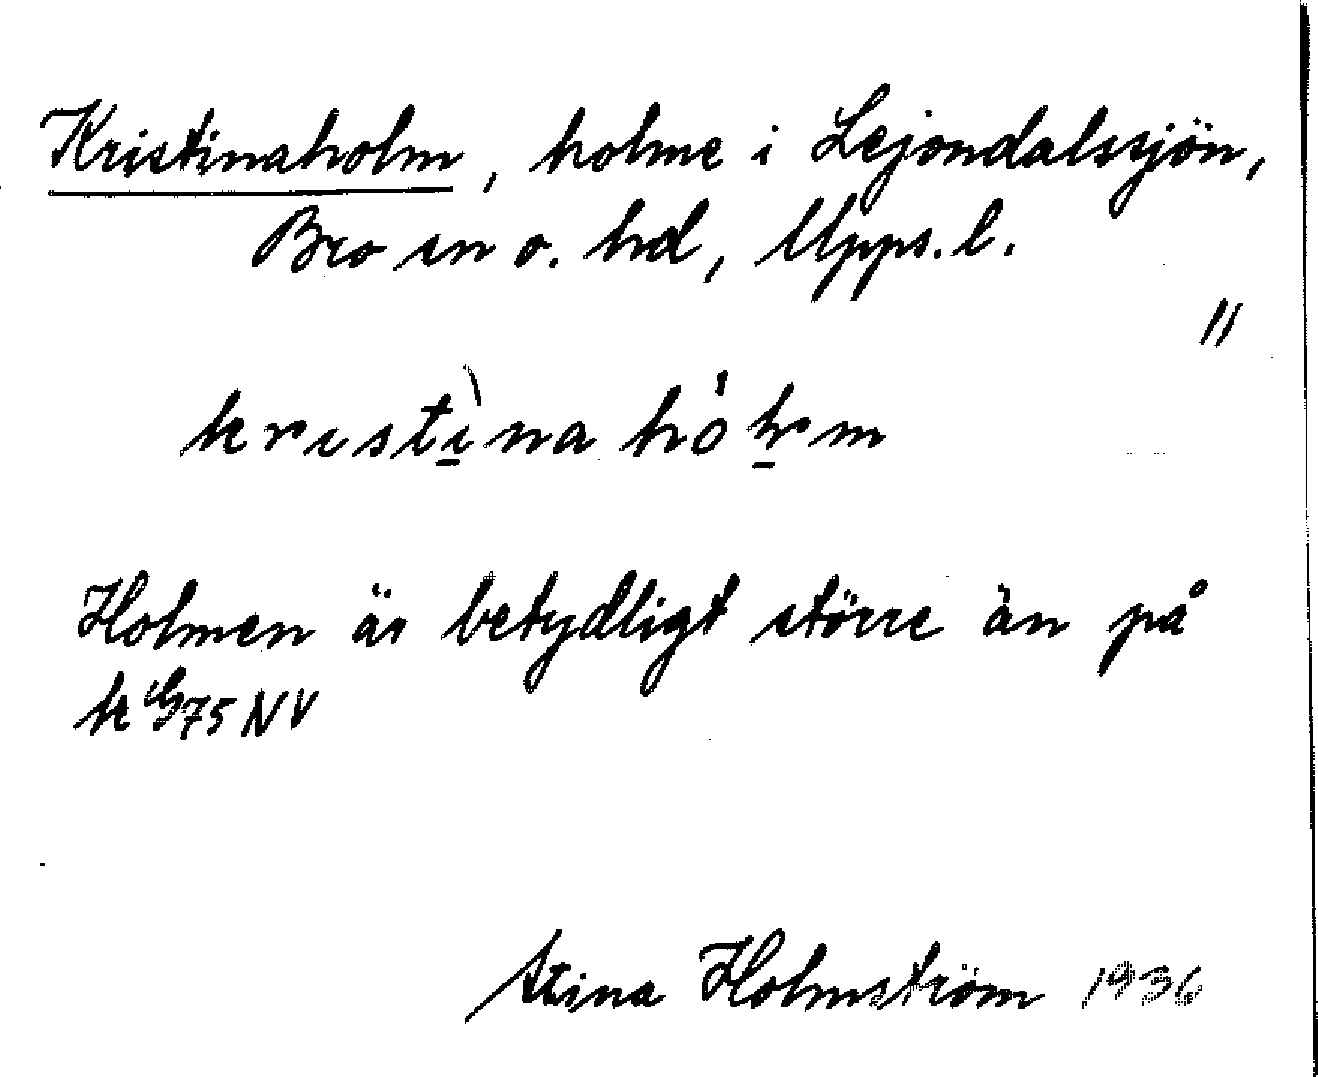 Kristinaholm, holme i Lejondalssjön,
Bro sn o. hd, Upps. l.
"
kristìna hó
Holmen är betydligt större än på
75 NV
Stina Holmström 1936